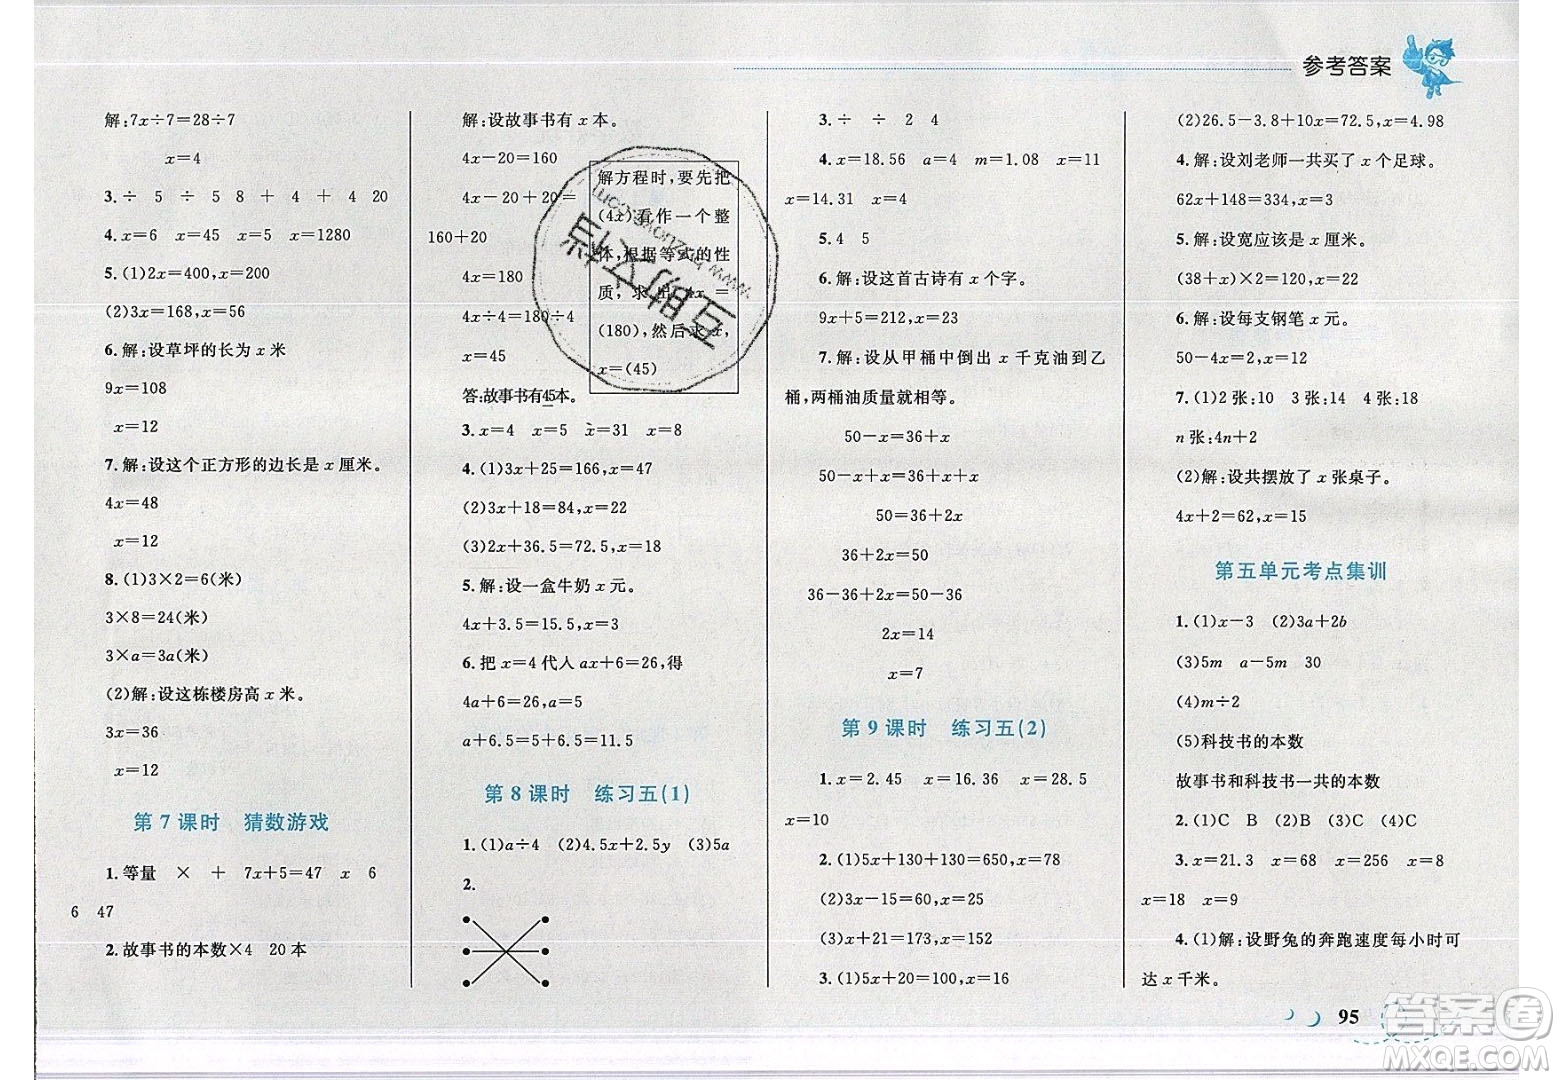 参考答案
解:7x÷7=28÷7
x=4
3.÷ 5 ÷ 5 8 + 4 + 4 20
4.x=6 x=45 x=5 x=1280
5.(1)2x=400,x=200
(2)3x=168,x=56
6.解:设草坪的长为x米
9x=108
x=12
7.解:设这个正方形的边长是x厘米。
4x=48
x=12
8.(1)3×2=6(米)
3×8=24(米)
3×a=3a(米)
(2)解:设这栋楼房高x米。
3x=36
x=12
第7课时 猜数游戏
1.等量 × + 7x+5=47 x 6
6 47
2.故事书的本数×4 20本
解:设故事书有x本。
4x-20=160
4x-20+20=
160+20
4x=180
4x÷4=180÷4
x=45
答:故事书有45本。
解方程时,要先把
(4x)看作一个整
体,根据等式的性
质,求出4x=
(180),然后求x,
x=(45)
3.x=4 x=5 x=31 x=8
4.(1)3x+25=166,x=47
(2)3x+18=84,x=22
(3)2x+36.5=72.5,x=18
5.解:设一盒牛奶x元。
4x+3.5=15.5,x=3
6.把x=4代人ax+6=26,得
4a+6=26,a=5
a+6.5=5+6.5=11.5
第8课时 练习五(1)
1.(1)a÷4 (2)4.5x+2.5y (3)5a
2.
3.÷ ÷ 2 4
4.x=18.56 a=4 m=1.08 x=11
x=14.31 x=9
5.4 5
6.解:设这首古诗有x个字。
9x+5=212,x=23
7.解:设从甲桶中倒出x千克油到乙
桶,两桶油质量就相等。
50-x=36+x
50-x+x=36+x+x
50=36+2x
36+2x=50
36-36+2x=50-36
2x=14
x=7
第9课时 练习五(2)
1.x=2.45 x=16.36 x=28.5
x=10
2.(1)5x+130+130=650,x=78
(2)3x-15=60,x=25
(3)x+21=173,x=152
3.(1)5x+20=100,x=16
(2)26.5-3.8+10x=72.5,x=4.98
4.解:设刘老师一共买了x个足球。
62x+148=334,x=3
5.解:设宽应该是x厘米。
(38+x)×2=120,x=22
6.解:设每支钢笔x元。
50-4x=2,x=12
7.(1)2张:10 3张:14 4张:18
n张:4n+2
(2)解:设共摆放了x张桌子。
4x+2=62,x=15
第五单元考点集训
1.(1)x-3 (2)3a+2b
(3)5m a-5m 30
(4)m÷2
(5)科技书的本数
故事书和科技书一共的本数
2.(1)C B (2)B (3)B (4)C
3.x=21.3 x=68 x=256 x=8
x=18 x=9
4.(1)解:设野兔的奔跑速度每小时可
达x千米。
95
答案圈
MXQE.COM